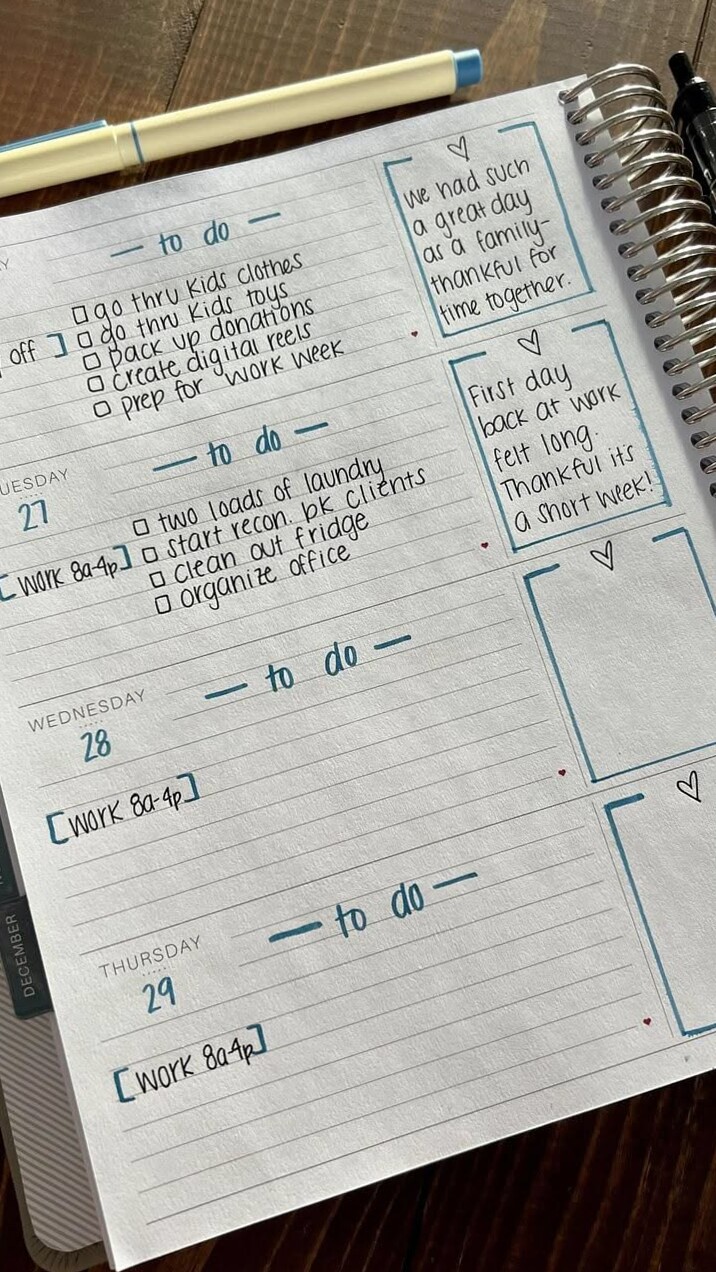 — to do —
off ]
□ go thru kids clothes
□ do thru kids toys
□ pack up donations
□ create digital reels
□ prep for work week
♡
We had such
a great day
as a family-
thankful for
time together.
UESDAY
27
[work 8a-4p]
— to do —
□ two loads of laundry
□ start recon. bk clients
□ clean out fridge
□ organize office
♡
First day
back at work
felt long.
Thankful it's
a short week!
WEDNESDAY
28
[work 8a-4p]
— to do —
♡
THURSDAY
29
[work 8a-4p]
— to do —
♡
DECEMBER